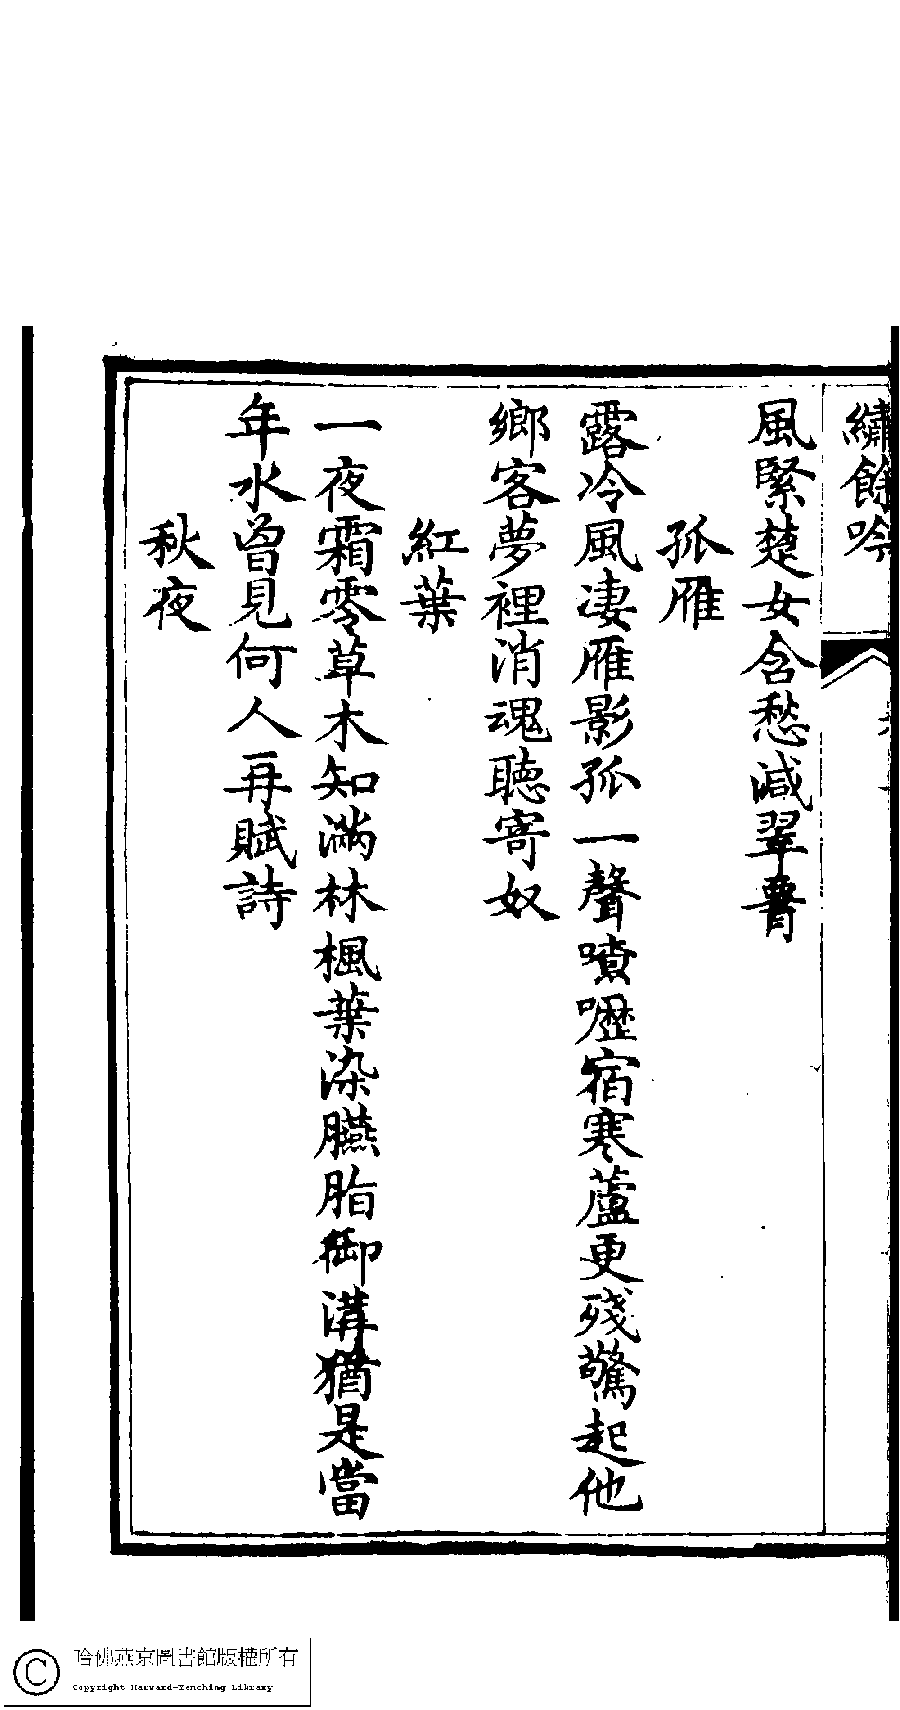 繡餘吟
風緊楚女含愁減翠眉
孤雁
露冷風淒雁影孤一聲嘹嚦宿寒蘆更殘驚起他
鄉客夢裡消魂聽寄奴
紅葉
一夜霜零草木知滿林楓葉染臙脂御溝猶是當
年水曾見何人再賦詩
秋夜
哈佛燕京圖書館版權所有
Copyright Harvard-Yenching Library